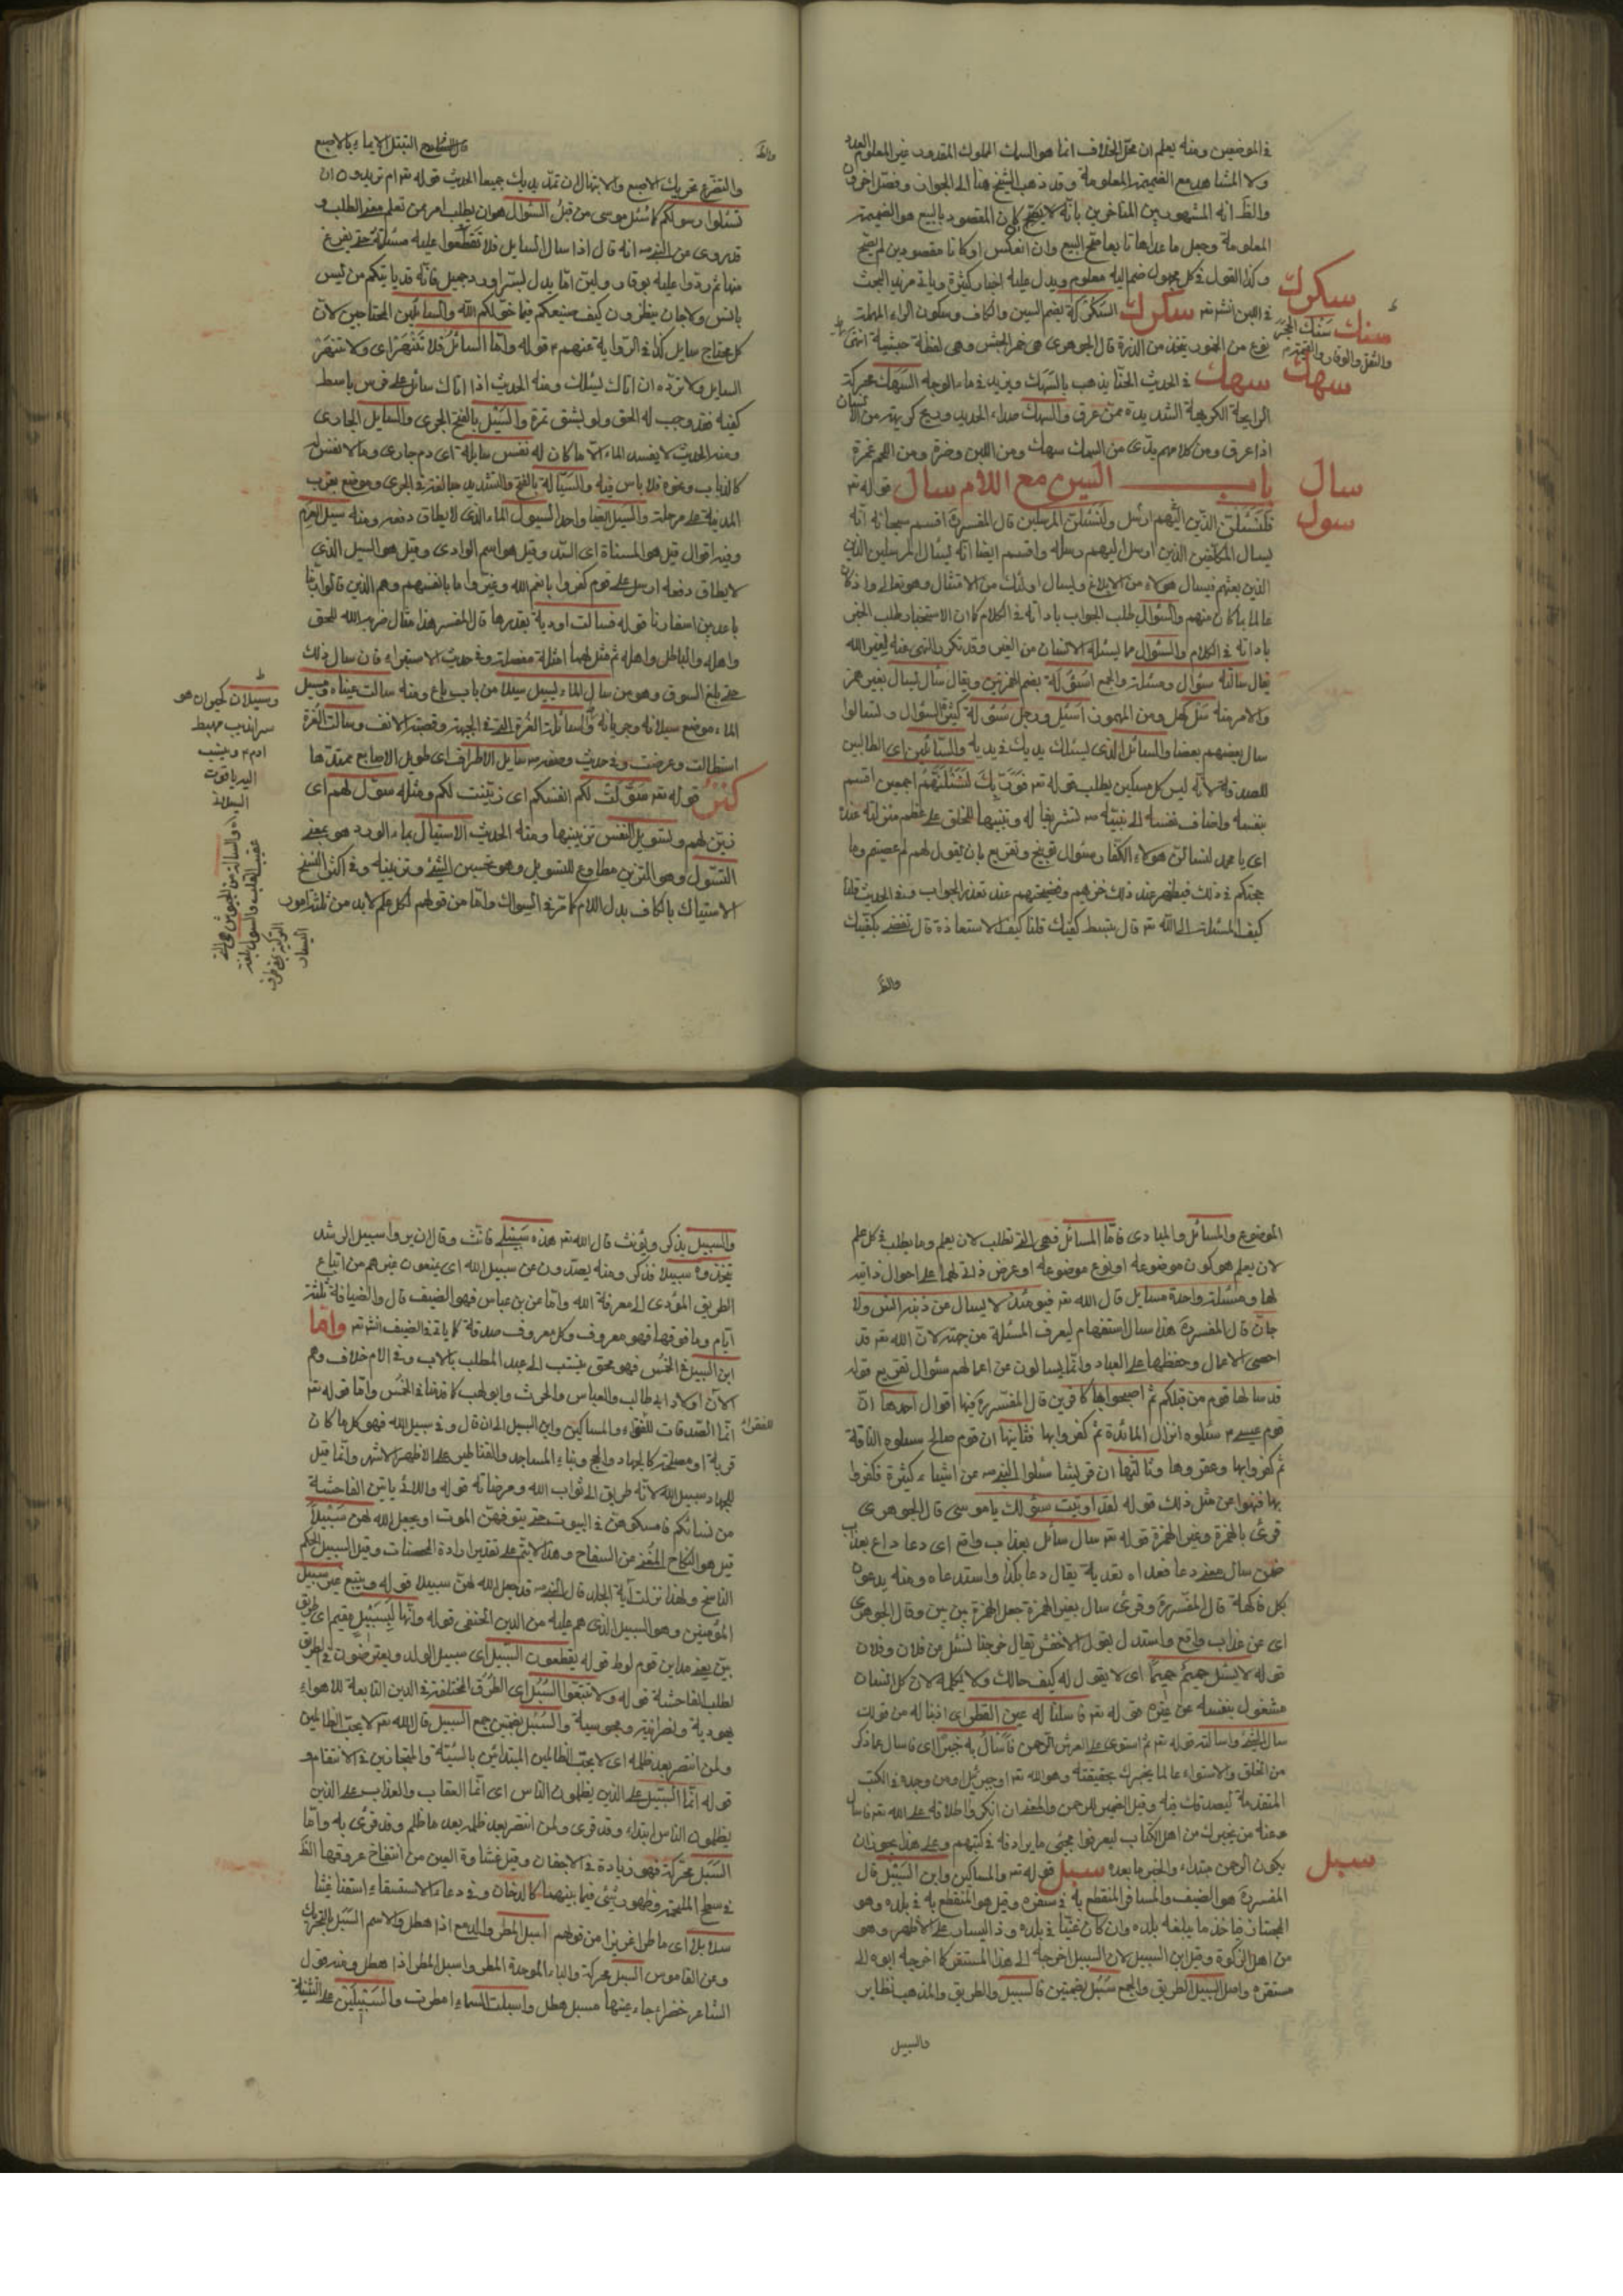 في الموضعين ومنه يعلم ان محل الخلاف انما هو السمك المملوك المقدور غير المعلوم العدد
ولا المشاهد مع الضميمة المعلومة وقد ذهب الشيخ هنا الى الجواز وفصل اخرون
والظ انه المشهور بين المتاخرين بانه لا يصح كون المقصود بالبيع هو الضميمة
المعلومة وجعل ما عداها تابعا صح البيع وان انعكس او كانا مقصودين لم يصح
وكذا القول في كل مجهول ضم اليه معلوم ويدل عليه اخبار كثيرة وياتي مزيد البحث
في اللبن انشء تعه سكرك السكركة بضم السين والكاف وسكون الراء المهملة
نوع من الخمور يتخذ من الذرة قال الجوهري هي خمر الحبش وهي لفظة حبشية انتهى
سهك في الحديث الحنا يذهب بالسهك ويزيد في ماء الوجه السهك محركة
الرايحة الكريهة الشديدة ممن عرق والسهك صداء الحديد وريح كريهة من الانسان
اذا عرق ومن كلامهم يدي من السمك سهك ومن اللبن وضرة ومن اللحم غمرة
باب السين مع اللام سال قوله تعه
فلنسئلن الذين اليهم ارسل ولنسئلن المرسلين قال المفسرة اقسم سبحانه انه
يسال المكلفين الذين ارسل اليهم رسله واقسم ايضا انه يسئال المرسلين الذين
الذين بعثهم فيسال هولاء من الابلاغ ويسال اولئك من الامتثال وهو تعالى وان كان
عالما بما كان منهم والسؤال طلب الجواب باداته في الكلام كما ان الاستخبار طلب الخبر
باداته في الكلام والسئوال ما يسئله الانسان من الغير وقد تكرر النهي عنه لغير الله
يقال سالته سئوال ومسئلة والجمع اسئولة بضم الهمزتين ويقال سال يسال بغير همز
والامر منه سل كهل ومن المهموز اسئل ورجل سئولة كثير السئوال وتسائلوا
سال بعضهم بعضا والسائل الذي يسئلك يديك في يديه والسائلين اى الطالبين
للصدقة لانه ليس كل مسكين يطلب قوله تعه فوربك لنسئلنهم اجمعين اقسم
بنفسه واضاف نفسه الى نبيه ص تشريفا له وتنبيها للخلق على عظم منزلته عنده
اى يا محمد لنسالن هولاء الكفار سئوال توبيخ وتقريع بان يقول لهم لم عصيتم وما
حجتكم في ذلك فيظهر عند ذلك خزيهم وفضيحتهم عند تعذر الجواب وفي الحديث قلنا
كيف المسئلة الى الله تعه قال تبسط كفيك قلنا كيف الاستعاذة قال تفضي بكفيك
والظ
سكرك
سنك
سهك
سال
سول
والتضرع تحريك الاصبع والابتهال ان تمد يديك جميعا الحديث قوله تعه ام تريدون ان
تسئلوا رسولكم كما سئل موسى من قبل السئوال هو ان يطلب امر ممن تعلم معنى الطلب و
قد روى عن النبي ص انه قال اذا سال السايل فلا تقطعوا عليه مسئلته حتى يفرغ
منها ثم ردوا عليه بوقار ولين اما بذل يسير او رد جميل فانه قد ياتيكم من ليس
بانس ولا جان ينظرون كيف صنيعكم فيما خولكم الله والسائلين المحتاجين لان
كل محتاج سايل كذا في الرواية عنهم ع قوله واما السائل فلا تنهر اى ولا تنهر
السايل ولا ترده ان اتاك يسئلك ومنه الحديث اذا اتاك سائل على فرس باسط
كفيه فقد وجب له الحق ولو بشق تمرة والسيل بالفتح الجرى والسايل الجارى
ومنه الحديث لا يفسد الماء الا ما كان له نفس سايلة اى دم جارى وما لا نفس له
كالذباب ونحوه فلا باس فيه والسيالة بالفتح والتشديد مبالغة في الجرى وموضع بقرب
المدينة على مرحلة والسيل ايضا واحد السيول الماء الذي لا يطاق دفعه ومنه سيل العرم
وفيه اقوال قيل هو المسناة اى السد وقيل هو اسم الوادى وقيل هو السيل الذي
لا يطاق دفعه ارسل على قوم كفروا بانعم الله وغيروا ما بانفسهم وهم الذين قالوا ربنا
باعد بين اسفارنا قوله فسالت اودية بقدرها قال المفسر هذا مثال ضربه الله للحق
واهله والباطل واهله ثم مثل لهما امثلة مفصلة وفي حديث الاستبراء فان سال ذلك
حتى بلغ السوق وهو من سال الماء يسيل سيلا من باب باع ومنه سالت عيناه ومسيل
الماء موضع سيلانه وجريانه والسائلة الغرة التي في الجبهة وقصبة الانف وسالت الغرة
استطالت وعرضت وفي حديث وصفه ص سايل الاطراف اى طويل الاصابع ممتدها
قوله تعه سولت لكم انفسكم اى زينت لكم ومثله سول لهم اى
زين لهم وتسويل النفس تزيينها ومنه الحديث الاستيال بماء الورد هو بمعنى
التسول وهو التزين مطاوع للتسويل وهو تحسين الشئ وتزيينه وفي اكثر النسخ
الاستياك بالكاف بدل اللام كما تر في السواك واما من قولهم لكل علم لابد من ثلثة امور
وسيلان كجيران هو
سرانديب مهبط
ادم ع وينسب
اليه ياقوت
الموضوع والمسائل والمبادى فاما المسائل فهي التي تطلب لان يعلم وما يطلب في كل علم
لان يعلم هو كون موضوعه او نوع موضوعه او عرض ذاتى لهما على احوال ذاتية
لها ومسئلة واحدة مسايل قال الله تعه فيومئذ لا يسال عن ذنبه انس ولا
جان قال المفسرة هذا سال استفهام ليعرف المسئلة من جهته لان الله تعه قد
احصى الاعمال وحفظها على العباد وانما يسالون عن اعمالهم سئوال تقريع قوله
قد سالها قوم من قبلكم ثم اصبحوا بها كافرين قال المفسرة فيها اقوال احدها ان
قوم عيسى ع سئلوه انزال المائدة ثم كفروا بها ثانيها ان قوم صالح سئلوه الناقة
ثم كفروا بها وعقروها وثالثها ان قريشا سئلوا النبي ص عن اشياء كثيرة فكفروا
بها فنهوا عن مثل ذلك قوله لقد اوتيت سئولك يا موسى قال الجوهرى
قرئ بالهمزة وغير الهمزة قوله تعه سال سائل بعذاب واقع اى دعا داع بعذاب
ضمن سال معنى دعا فعداه تعديه يقال دعا بكذا واستدعاه ومنه يدعون
بكل فاكهة قال المفسرة وقرئ سال بغير الهمزة جعل الهمزة بين بين وقال الجوهرى
اى عن عذاب واقع واستدل بقول الاخفش يقال خرجنا نسئل عن فلان وفلان
قوله لا يسئل حميم حميما اى لا يقول له كيف حالك ولا يكلمه لان كل انسان
مشغول بنفسه عن غيره قوله تعه فاسلنا له عين القطر اى اذبنا له من قولك
سال الشئ واسالته قوله تعه ثم استوى على العرش الرحمن فاسئال به خبيرا اى فاسال عما ذكر
من الخلق والاستواء عالما يخبرك بحقيقته وهو الله تعه او جبرئيل او من وجده في الكتب
المتقدمة ليصدقك فيه وقيل الضمير للرحمن والمعنى ان انكروا اطلاقه على الله تعه فاسال
عنه من يخبرك من اهل الكتاب ليعرفوا مجئ ما يرادفه في كتبهم وعلى هذا يجوز ان
يكون الرحمن مبتداء والخبر ما بعده سبل قوله تعه والمساكين وابن السبيل قال
المفسرة هو الضيف والمسافر المنقطع به في سفره وقيل هو المنقطع به في بلده وهو
المجتاز فياخذ ما يبلغه بلده وان كان غنيا في بلده وذا اليسار على الاظهر وهو
من اهل الزكوة وقيل ابن السبيل لان السبيل اخرجه الى هذا المستقر كما اخرجه ابوه الى
مستقره واصل السبيل الطريق والجمع سبل بضمتين فالسبيل والطريق والمذهب نظاير
والسبيل
سبل
والسبيل يذكر ويونث قال الله تعه هذه سبيلى فانث وقال ان يروا سبيل الرشد
يتخذوه سبيلا فذكر ومنه يصدون عن سبيل الله اى يمنعون غيرهم من اتباع
الطريق المؤدى الى معرفة الله واما عن بن عباس فهو الضيف قال والضيافة ثلثة
ايام وما فوقها فهو معروف وكل معروف صدقة كما ياتي في الضيف انشء تعه واما
ابن السبيل في الخمس فهو محق ينتسب الى عبد المطلب بالاب وفي الام خلاف وهم
الان اولاد ابى طالب والعباس والحرث وابى لهب كما قدمنا في الخمس واما قوله تعه
انما الصدقات للفقراء والمساكين وابن السبيل الى ان قال وفي سبيل الله فهو كل ما كان
قربة او مصلحة كالجهاد والحج وبناء المساجد والقناطير على الاظهر الاشهر وانما قيل
للجهاد سبيل الله لانه طريق الى ثواب الله ومرضاته قوله واللائى ياتين الفاحشة
من نسائكم فامسكوهن في البيوت حتى يتوفهن الموت او يجعل الله لهن سبيلا
قيل هو النكاح المغنى عن السفاح وهذا لا يتم على تقدير ارادة المحصنات وقيل السبيل الحكم
الناسخ ولهذا نزلت اية الجلد قال النبي ص قد جعل الله لهن سبيلا قوله ويتبع غير سبيل
المؤمنين وهو السبيل الذي هم عليه من الدين الحنفى قوله وانها لبسبيل مقيم اى طريق
بين يعنى مداين قوم لوط قوله يقطعون السبيل اى سبيل الولد ويعترضون في الطريق
لطلب الفاحشة قوله ولا تتبعوا السبل اى الطرق المختلفة في الدين التابعة للاهواء
يهودية ونصرانية ومجوسية والسبل بضمتين جمع السبيل قال الله تعه لا يحب الظالمين
ولمن انتصر بعد ظلمه اى لا يحب الظالمين المبتدئين بالسيئة والمتجاوزين في الانتقام و
قوله انما السبيل على الذين يظلمون الناس اى انما العقاب والعذاب على الذين
يظلمون الناس ابتداء وقد قرى ولمن انتصر بعد ظلمه بعد ما ظلم وقد قرئ به واما
السبل محركة فهو زيادة في الاجفان وقيل غشاوة العين من انتفاخ عروقها الظ
في سطح الملتحمة وظهور شئ فيما بينهما كالدخان وفي دعاء الاستسقاء اسقنا غيثا
سبلا بلا اى ماطرا غزيرا من قولهم اسبل المطر والدمع اذا هطل والاسم السبل بالتحريك
ومن القاموس السبل محركة والباء الموحدة المطر واسبل المطر اذا هطل ومنه قول
الشاعر خضراء جاد عليها مسبل هطل واسبلت السماء امطرت والسبيلين على التثنية